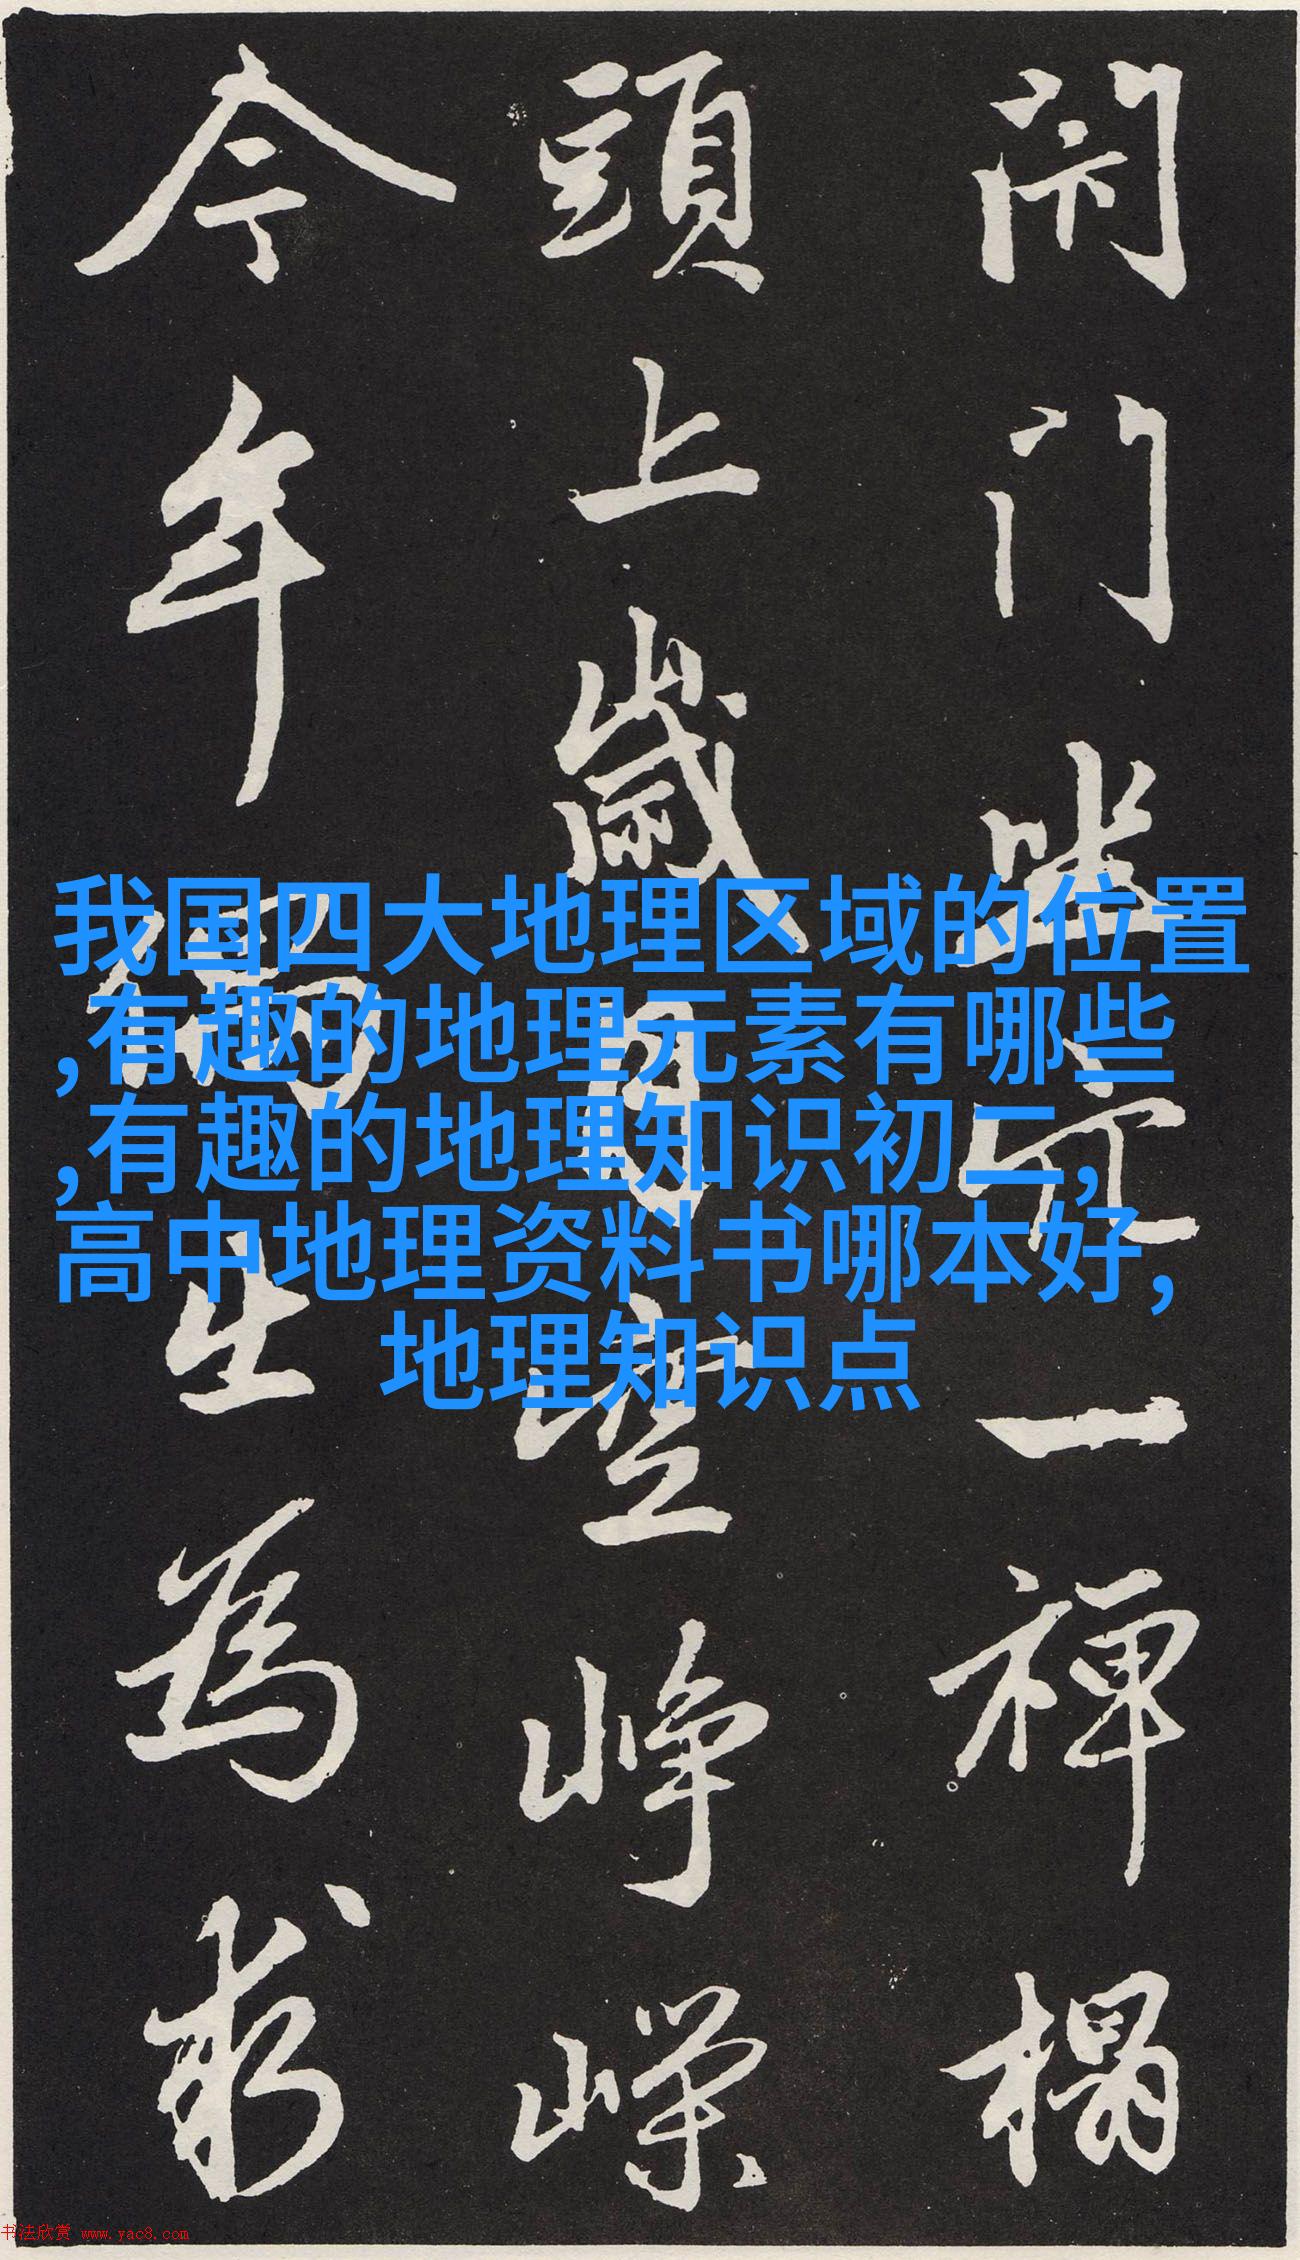 闭门坐穴一禅榻
頭上歲月空峥嶸
今年偶出為求
我国四大地理区域的位置
,有趣的地理元素有哪些
,有趣的地理知识初二,
高中地理资料书哪本好,
地理知识点
书法欣赏 www.yac8.com